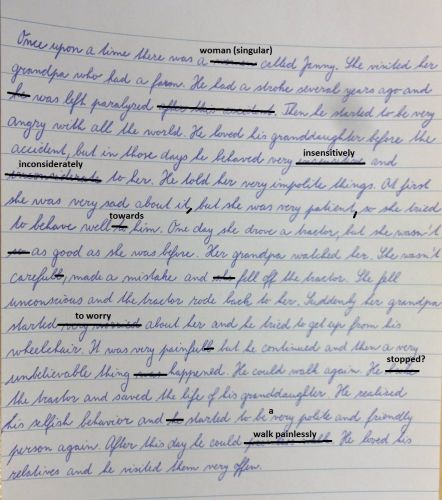 woman (singular)
Once upon a time there was a called Janny. She visited her
grandpa who had a farm. He had a stroke several years ago and
he was left paralyzed after this accident. Then he started to be very
angry with all the world. He loved his granddaughter before the
insensitively
accident, but in those days he behaved very and
inconsiderately
to her. He told her very impolite things. At first
she was very sad about it, but she was very patient, so she tried
towards
to behave well to him. One day she drove a tractor, but she wasn't
as good as she was before. Her grandpa watched her. She wasn't
carefull, made a mistake and she fell off the tractor. She fell
unconscious and the tractor rode back to her. Suddenly her grandpa
to worry
started very worried about her and he tried to get up from his
wheelchair. It was very painfull but he continued and then a very
stopped?
unbelievable thing was happened. He could walk again. He
the tractor and saved the life of his granddaughter. He realised
his selfish behavior and he started to be a very polite and friendly
person again. After this day he could walk painlessly. He loved his
relatives and he visited them very often.